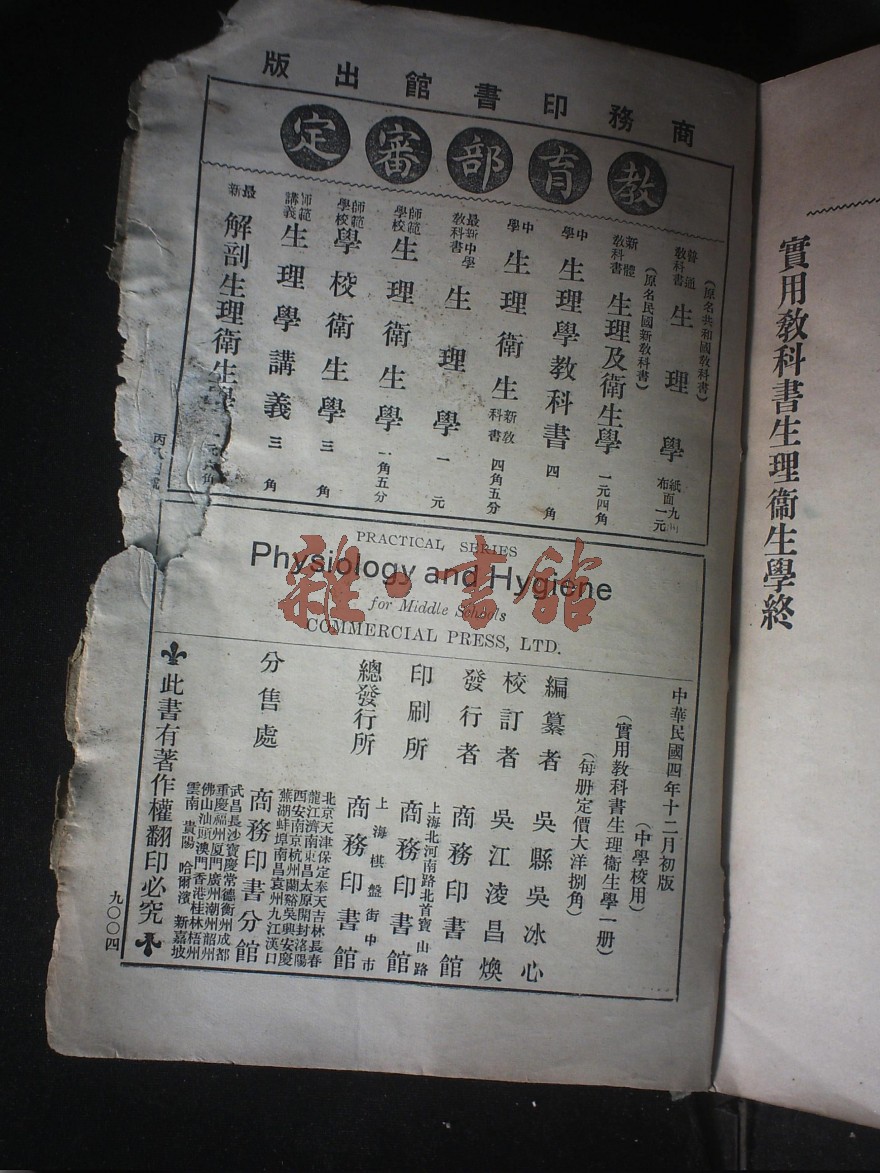 實用教科書生理衞生學終
商務印書館出版
教育部審定
(原名共和國教科書)
普通教科書 生理學 紙面九
布 一元
(原名民國新教科書)
新體教科書 生理及衞生學 一元四角
中學 生理學教科書 四角
中學 生理衞生 新教科書 四角五分
最新中學教科書 生理學 一元
師範學校 生理衞生學 一角五分
師範學校 學校衞生學 三角
師範講義 生理學講義 三角
最新 解剖生理衞生學
PRACTICAL SERIES
Physiology and Hygiene
for Middle Schools
COMMERCIAL PRESS, LTD.
雜·書館
中華民國四年十二月初版
(中學校用)
(實用教科書生理衞生學一册)
(每册定價大洋捌角)
編纂者 吳縣吳冰心
校訂者 吳江淩昌煥
發行者 商務印書館
上海北河南路北首寶山路
印刷所 商務印書館
上海棋盤街中市
總發行所 商務印書館
北京天津保定奉天吉林長春
龍江濟南東昌太原開封洛陽
西安南京杭州蘭谿吳興安慶
蕪湖蚌埠南昌袁州九江漢口
分售處 商務印書分館
武昌長沙寶慶常德衡州成都
重慶福州厦門廣州潮州韶州
佛山汕頭澳門香港桂林梧州
雲南 貴陽 哈爾濱 新嘉坡
此書有著作權翻印必究
九〇〇四